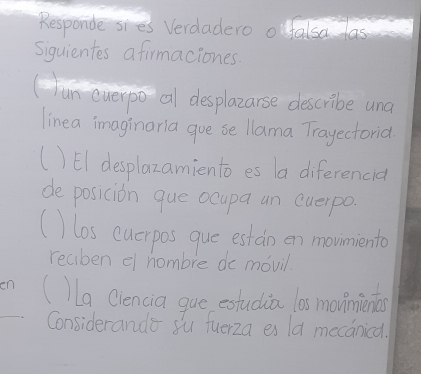 Responde si es Verdadero o falsa las
Siguientes afirmaciones.
( ) un cuerpo al desplazarse describe una
línea imaginaria que se llama Trayectoria.
( ) El desplazamiento es la diferencia
de posición que ocupa un cuerpo.
( ) los cuerpos que están en movimiento
reciben el nombre de móvil.
en
( ) La Ciencia que estudia los movimientos
Considerando su fuerza es la mecánica.